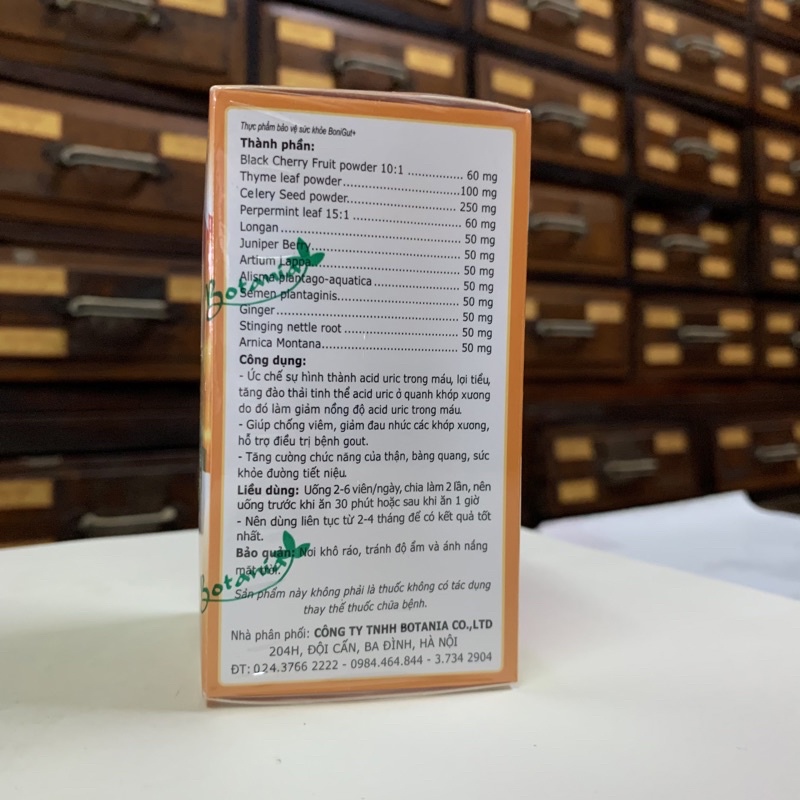 Thực phẩm bảo vệ sức khỏe BoniGut+
Thành phần:
Black Cherry Fruit powder 10:1 ................ 60 mg
Thyme leaf powder................................100 mg
Celery Seed powder............................... 250 mg
Perpermint leaf 15:1 .............................. 60 mg
Longan ................................................ 50 mg
Juniper Berry........................................ 50 mg
Artium Lappa........................................ 50 mg
Alisma plantago-aquatica ........................ 50 mg
Semen plantaginis.................................. 50 mg
Ginger.................................................. 50 mg
Stinging nettle root ................................ 50 mg
Arnica Montana...................................... 50 mg
Botania
Công dụng:
- Ức chế sự hình thành acid uric trong máu, lợi tiểu,
tăng đào thải tinh thể acid uric ở quanh khớp xương
do đó làm giảm nồng độ acid uric trong máu.
- Giúp chống viêm, giảm đau nhức các khớp xương,
hỗ trợ điều trị bệnh gout.
- Tăng cường chức năng của thận, bàng quang, sức
khỏe đường tiết niệu.
Liều dùng: Uống 2-6 viên/ngày, chia làm 2 lần, nên
uống trước khi ăn 30 phút hoặc sau khi ăn 1 giờ
- Nên dùng liên tục từ 2-4 tháng để có kết quả tốt
nhất.
Bảo quản: Nơi khô ráo, tránh độ ẩm và ánh nắng
mặt trời.
Botania
Sản phẩm này không phải là thuốc không có tác dụng
thay thế thuốc chữa bệnh.
Nhà phân phối: CÔNG TY TNHH BOTANIA CO.,LTD
204H, ĐỘI CẤN, BA ĐÌNH, HÀ NỘI
ĐT: 024.3766 2222 - 0984.464.844 - 3.734 2904